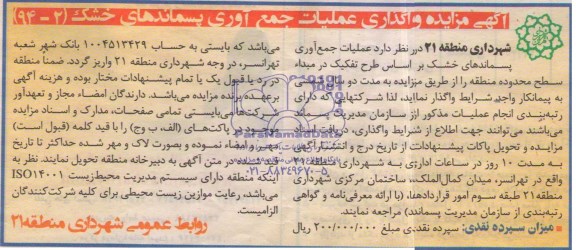 آگهی مزایده واگذاری عملیات جمع آوری پسماندهای خشک (۲ - ۹۴)
شهرداری منطقه ۲۱ در نظر دارد عملیات جمع‌آوری
پسماندهای خشک بر اساس طرح تفکیک در مبداء
سطح محدوده منطقه را از طریق مزایده به مدت دو سال شمسی
به پیمانکار واجد شرایط واگذار نماید، لذا شرکتهایی که دارای
رتبه‌بندی انجام عملیات مذکور از سازمان مدیریت پسماند
می‌باشند می‌توانند جهت اطلاع از شرایط واگذاری، دریافت اسناد
مزایده و تحویل پاکات پیشنهادات از تاریخ درج و انتشار آگهی
به مدت ۱۰ روز در ساعات اداری به شهرداری منطقه ۲۱
واقع در تهرانسر، میدان کمال‌الملک، ساختمان مرکزی شهرداری
منطقه ۲۱ طبقه سوم امور قراردادها، (با ارائه معرفی‌نامه و گواهی
رتبه‌بندی از سازمان مدیریت پسماند) مراجعه نمایند.
■ میزان سپرده نقدی: سپرده نقدی مبلغ ۲۰۰/۰۰۰/۰۰۰ ریال
می‌باشد که بایستی به حساب ۱۰۰۴۵۱۳۴۲۹ بانک شهر شعبه
تهرانسر، در وجه شهرداری منطقه ۲۱ واریز گردد. ضمنا منطقه
در رد یا قبول یک یا تمام پیشنهادات مختار بوده و هزینه آگهی
برعهده برنده مزایده می‌باشد. دارندگان امضاء مجاز و تعهدآور
شرکت‌ها می‌بایستی تمامی صفحات، مدارک و اسناد مزایده
موجود در پاکت‌های (الف، ب و ج) را با قید کلمه (قبول است)
مهر و امضاء نموده و بصورت لاک و مهر شده حداکثر تا تاریخ
در متن آگهی به دبیرخانه منطقه تحویل نمایند. نظر به
اینکه منطقه دارای سیستم مدیریت محیط‌زیست ISO۱۴۰۰۱
می‌باشد، رعایت موازین زیست محیطی برای کلیه شرکت‌کنندگان
الزامیست.
روابط عمومی شهرداری منطقه۲۱
ParsNamadData
۰۲۱-۸۸۳۴۹۶۷۰-۵